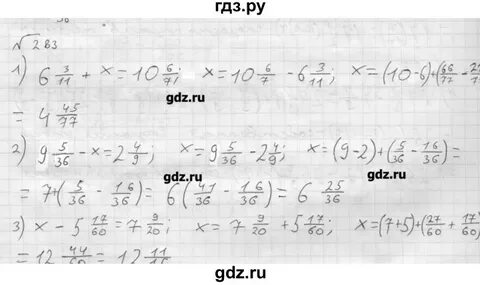 гдз.ру
√283
1) 6 3/11 + x = 10 6/7; x = 10 6/7 - 6 3/11; x = (10-6)+(66/77 - 21
gdz.ru gdz.ru
= 4 45/77
2) 9 5/36 - x = 2 4/9; x = 9 5/36 - 2 4/9; x = (9-2)+(5/36 - 16/36) =
= 7+(5/36 - 16/36) = 6(41/36 - 16/36) = 6 25/36
gdz.ru gdz.ru
3) x - 5 17/60 = 7 9/20; x = 7 9/20 + 5 17/60; x = (7+5)+(27/60 + 17/60)
= 12 44/60 = 12 11/
gdz.ru